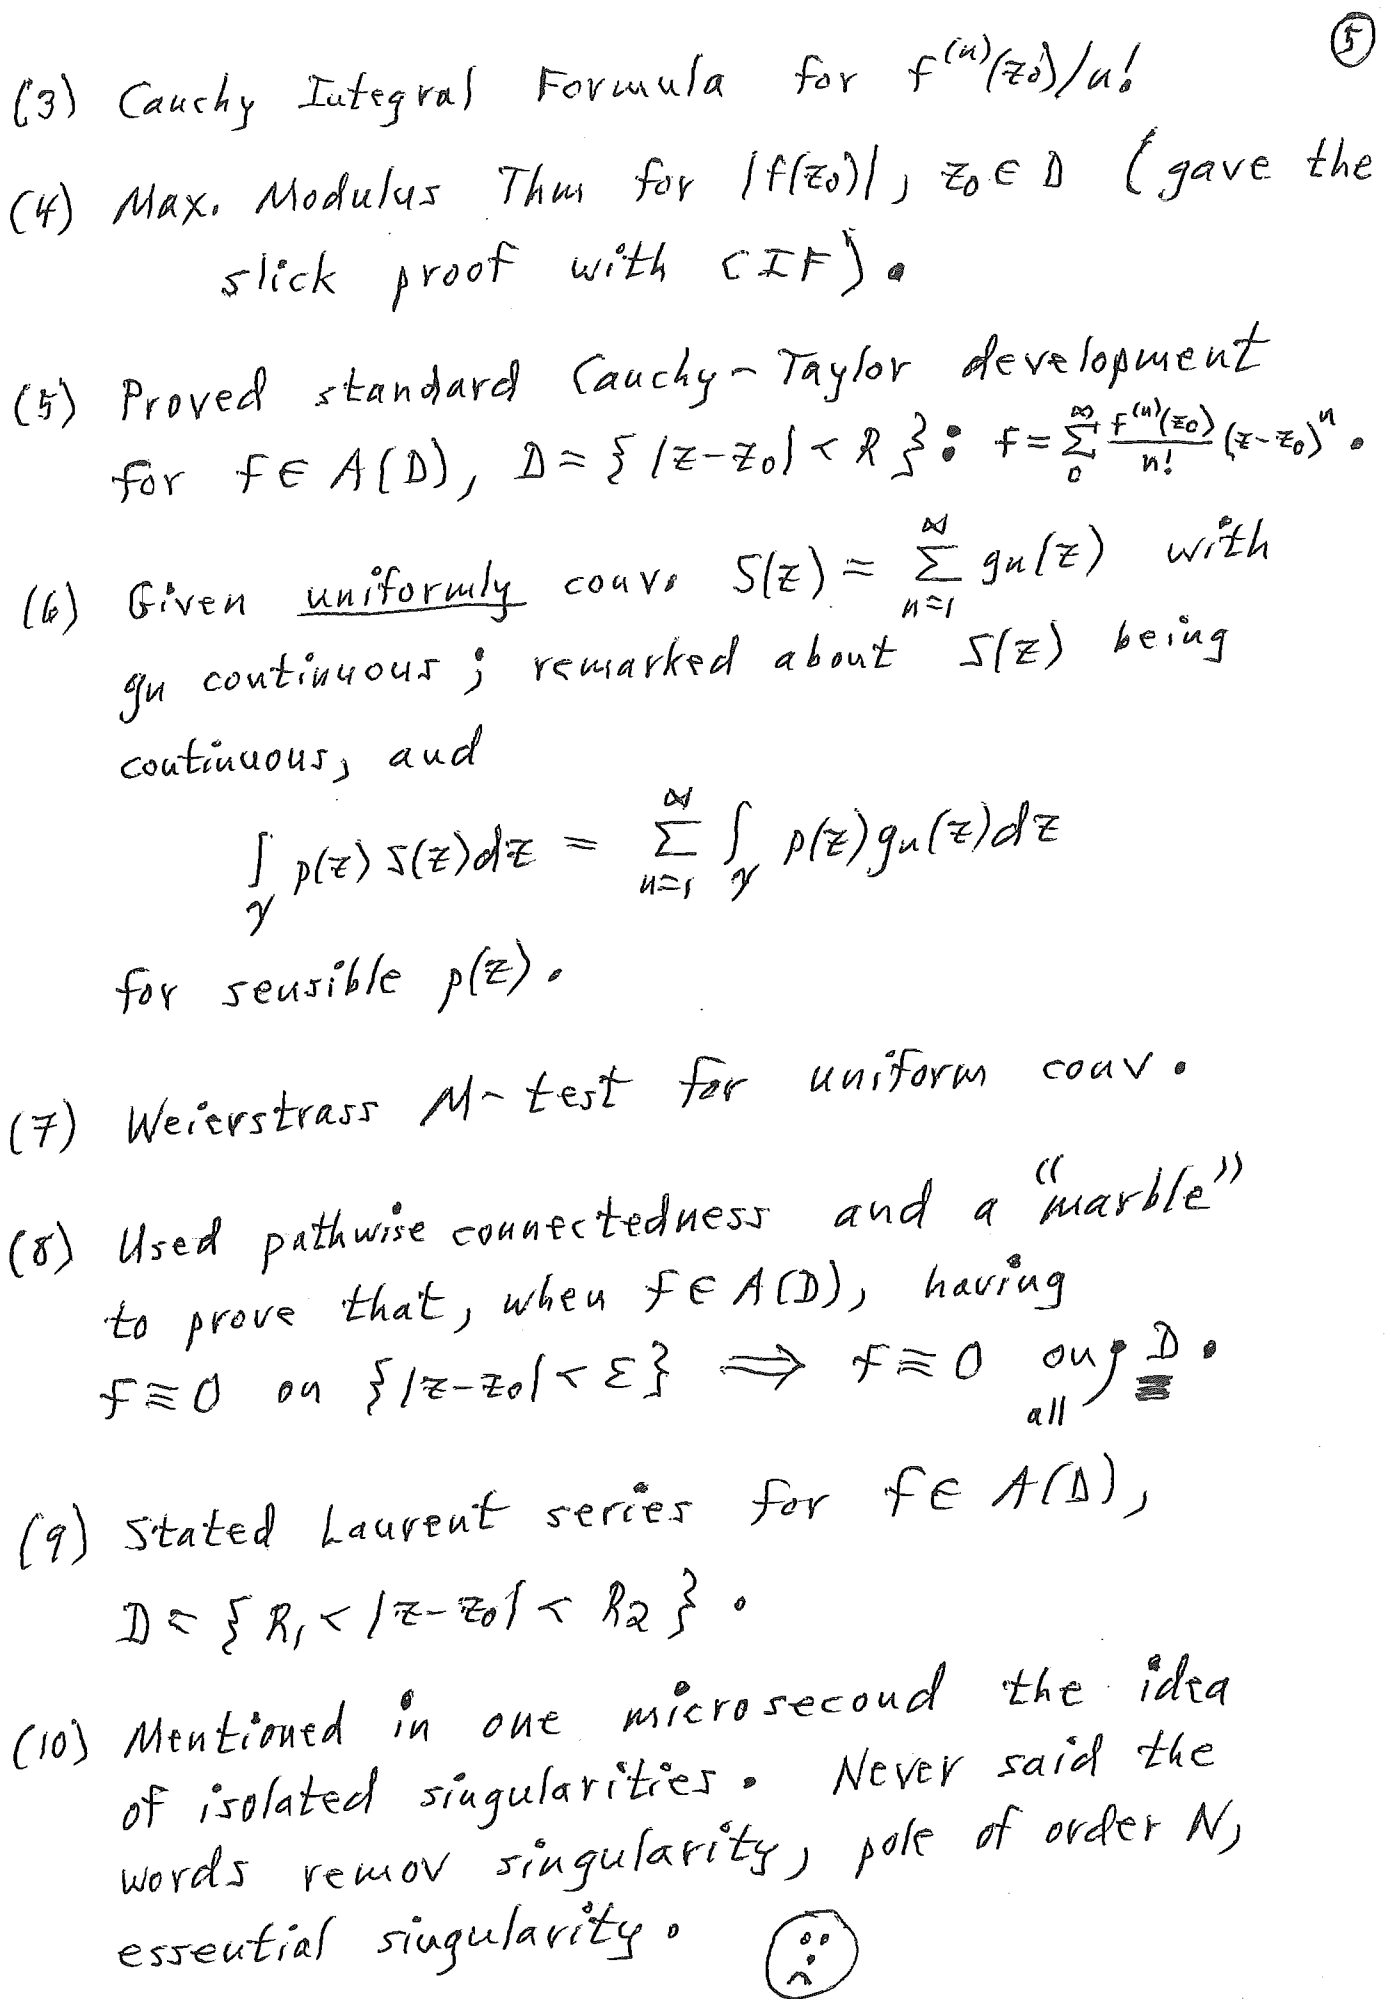 (5)
(3) Cauchy Integral Formula for f^(n)(z₀)/n!
(4) Max. Modulus Thm for |f(z₀)|, z₀ ∈ D (gave the
slick proof with CIF).
(5) Proved standard Cauchy-Taylor development
for f ∈ A(D), D = {|z-z₀| < R}: f = Σ_0^∞ f^(n)(z₀)/n! (z-z₀)^n.
(6) Given uniformly conv. S(z) = Σ_{n=1}^∞ gn(z) with
gn continuous; remarked about S(z) being
continuous, and
∫_γ p(z) S(z)dz = Σ_{n=1}^∞ ∫_γ p(z)gn(z)dz
for sensible p(z).
(7) Weierstrass M-test for uniform conv.
(8) Used pathwise connectedness and a "marble"
to prove that, when f ∈ A(D), having
f ≡ 0 on {|z-z₀| < ε} ⟹ f ≡ 0 on all D.
(9) Stated Laurent series for f ∈ A(D),
D = {R₁ < |z-z₀| < R₂}.
(10) Mentioned in one microsecond the idea
of isolated singularities. Never said the
words remov singularity, pole of order N,
essential singularity.